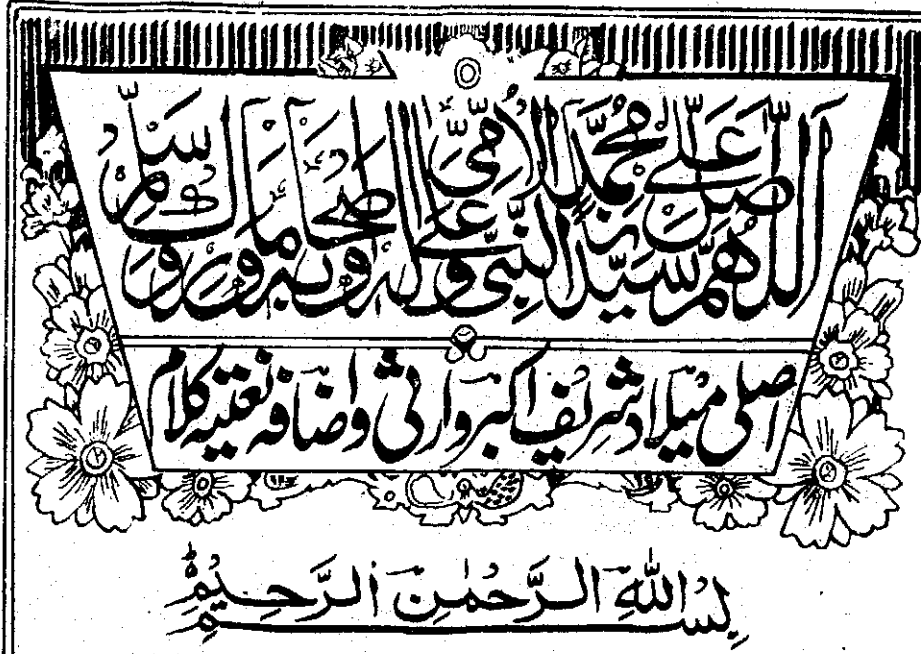 اَللّٰهُمَّ صَلِّ عَلٰی سَیِّدِنَا مُحَمَّدِنِ النَّبِیِّ الْاُمِّیِّ وَعَلٰی اٰلِهٖ وَاَصْحَابِهٖ وَبَارِكْ وَسَلِّمْ
اصلی میلاد شریف اکبر وارثی واضافہ نعتیہ کلام
بِسْمِ اللّٰهِ الرَّحْمٰنِ الرَّحِیْمِ